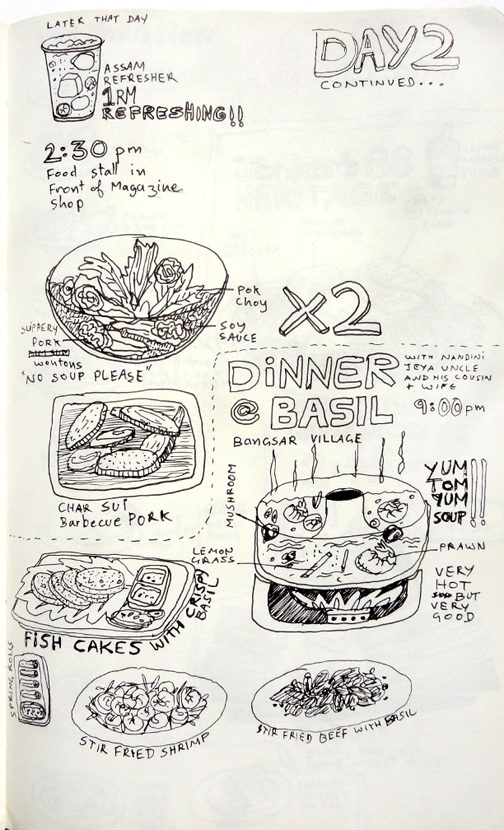 LATER THAT DAY
DAY 2
CONTINUED...
ASSAM
REFRESHER
1RM
REFRESHING!!
2:30 pm
Food stall in
Front of Magazine
Shop
POK
CHOY
SOY
SAUCE
X2
SLIPPERY
PORK
wontons
"NO SOUP PLEASE"
CHAR SUI
Barbecue PORK
DINNER
@ BASIL
BANGSAR VILLAGE
WITH NANDINI
JEYA UNCLE
AND HIS COUSIN
+ WIFE
9:00pm
YUM
TOM
YUM
SOUP!!
MUSHROOM
LEMON
GRASS
PRAWN
VERY
HOT
BUT
VERY
GOOD
FISH CAKES WITH CRISPY
BASIL
SPRING ROLLS
STIR FRIED SHRIMP
STIR FRIED BEEF WITH BASIL